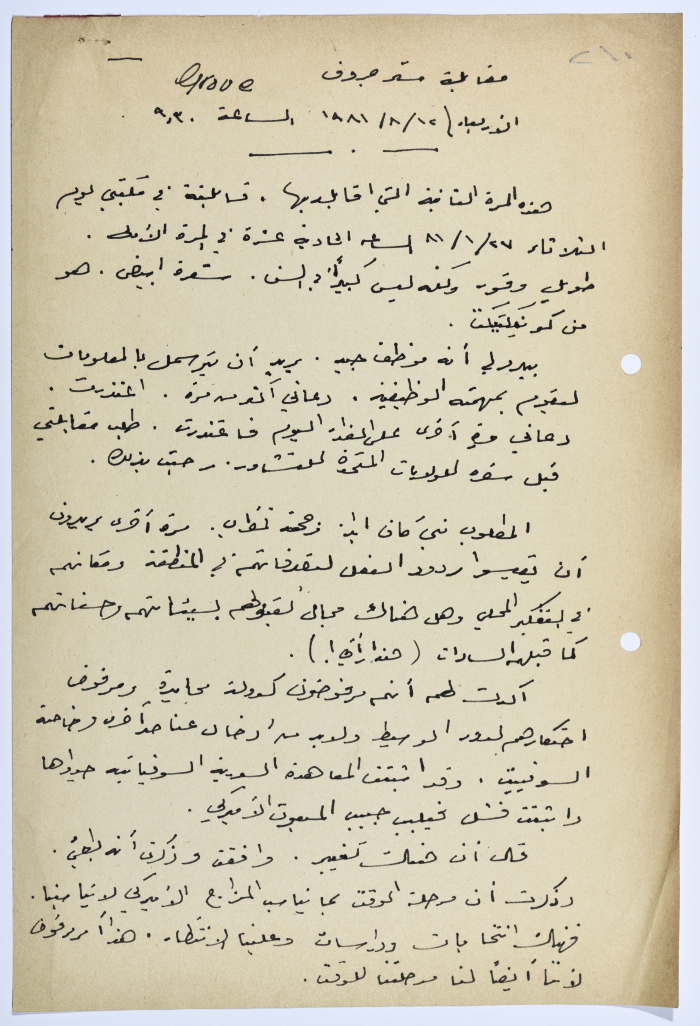 ٢١٠
مقابلة مستر جروف Grove
الاربعاء ١٢/ ٨/ ١٩٨١ الساعة ٩,٣٠
هذه المرة الثانية التي اقابله بها . قابلته في مكتبي يوم
الثلاثاء ٢٧/ ١/ ٨١ الساعة الحادية عشرة في المرة الأولى .
طويل وقور ولكنه ليس كبيراً في السن . شعره ابيض . هو
من كونيتيكت .
يبدو لي أنه موظف جيد . يريد أن بالمعلومات
ليقوم بمهمته الوظيفية . دعاني أكثر من مرة . اعتذرت .
دعاني مرة أخرى على الغداء اليوم فاعتذرت . طلب مقابلتي
قبل سفره للولايات المتحدة للتشاور . رحبت بذلك .
المطلوب نبي كان وجهة نظري . مرة أخرى يريدون
أن يقيسوا ردود الفعل لتصرفاتهم في المنطقة ومكانهم
في التفكير المحلي وهل هناك مجال لقبولهم بسيئاتهم وحسناتهم
كما قبلهم السادات ( هذا رأيي ! ) .
أكدت لهم أنهم مرفوضون كدولة محايدة ومرفوض
احتكارهم لدور الوسيط ولابد من ادخال عناصر أخرى وخاصة
السوفييت . وقد اثبتت المعاهدة السورية السوفياتية جدواها
واثبتت فشل فيليب حبيب المبعوث الأميركي .
قال ان هناك تغيير . وافقت وذكرت أنه بطيء .
وذكرت أن مرحلة الوقت بما يناسب المزاج الأميركي لا يناسبنا .
فهناك انتخابات ودراسات وعلينا الانتظار . هذا أمر مرفوض
لأننا أيضاً لنا مرحلتنا للوقت .